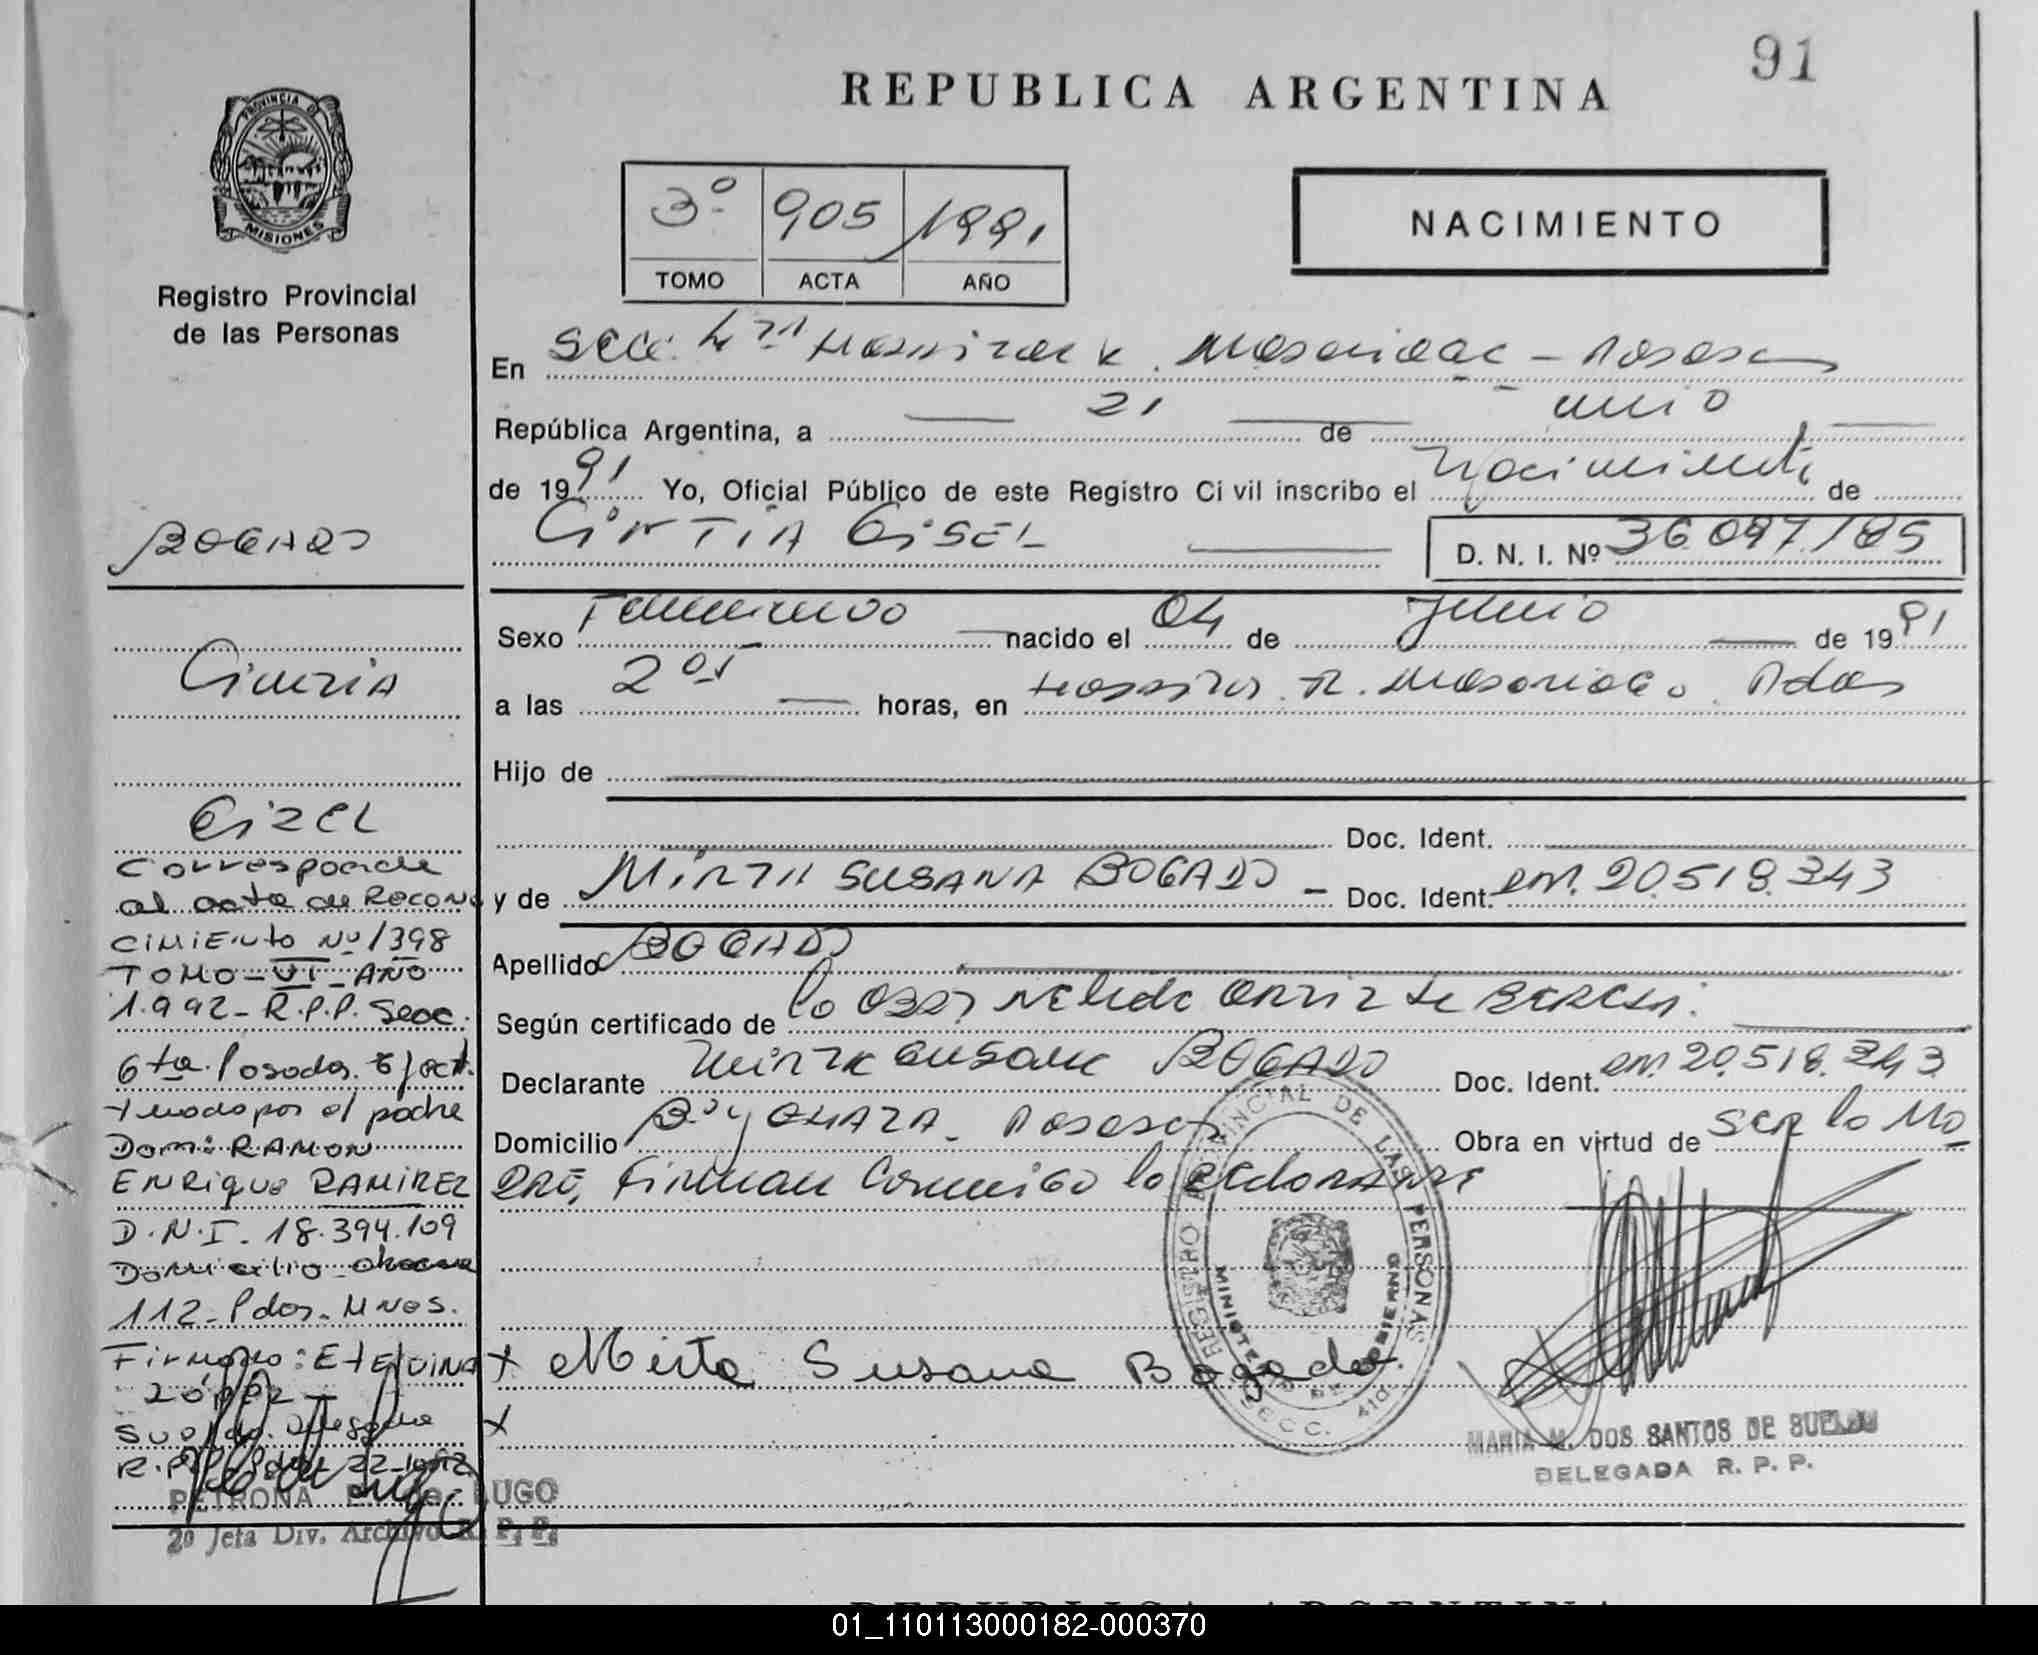 91
REPUBLICA ARGENTINA
PROVINCIA DE
MISIONES
Registro Provincial
de las Personas
3º 905 1991
TOMO ACTA AÑO
NACIMIENTO
En Secc.
República Argentina, a 21 de Junio
de 1991 Yo, Oficial Público de este Registro Ci vil inscribo el Nacimiento de
CiNTIA GiSEL D. N. I. Nº 36.097.185
Sexo Femenino nacido el 04 de Junio de 1991
a las 2 05 horas, en Hospital R. Madariaga. Pdas
Hijo de
Doc. Ident.
y de MIRTA SUSANA BOGADO - Doc. Ident. DNI. 20.518.343
Apellido BOGADO
Según certificado de la Obst. Nelida Ortiz de
Declarante Mirta Susana BOGADO Doc. Ident. DNI. 20.518.343
Domicilio Bº Posadas Obra en virtud de SER la MA
DRE, Firman Conmigo la declarante
Mirta Susana Bogado
REGISTRO PROVINCIAL DE LAS PERSONAS
MINISTERIO DE GOBIERNO
MARIA M. DOS SANTOS DE SUELDO
DELEGADA R. P. P.
BOGADO
Cintia
Gizel
Corresponde
al acta de Recono
CIMIENTO Nº 1398
TOMO - VI - AÑO
1.992 - R.P.P. Secc.
6ta. Posadas
por el padre
Dom: RAMON
ENRIQUE RAMIREZ
D.N.I. - 18.394.109
Domicilio
112 - Pdas. Mnes.
Firmado: ETELVINA
LÓPEZ
R.P.P.
PETRONA LUGO
2º Jefa Div. Archivo R. P. P.
REPUBLICA ARGENTINA
01_110113000182-000370